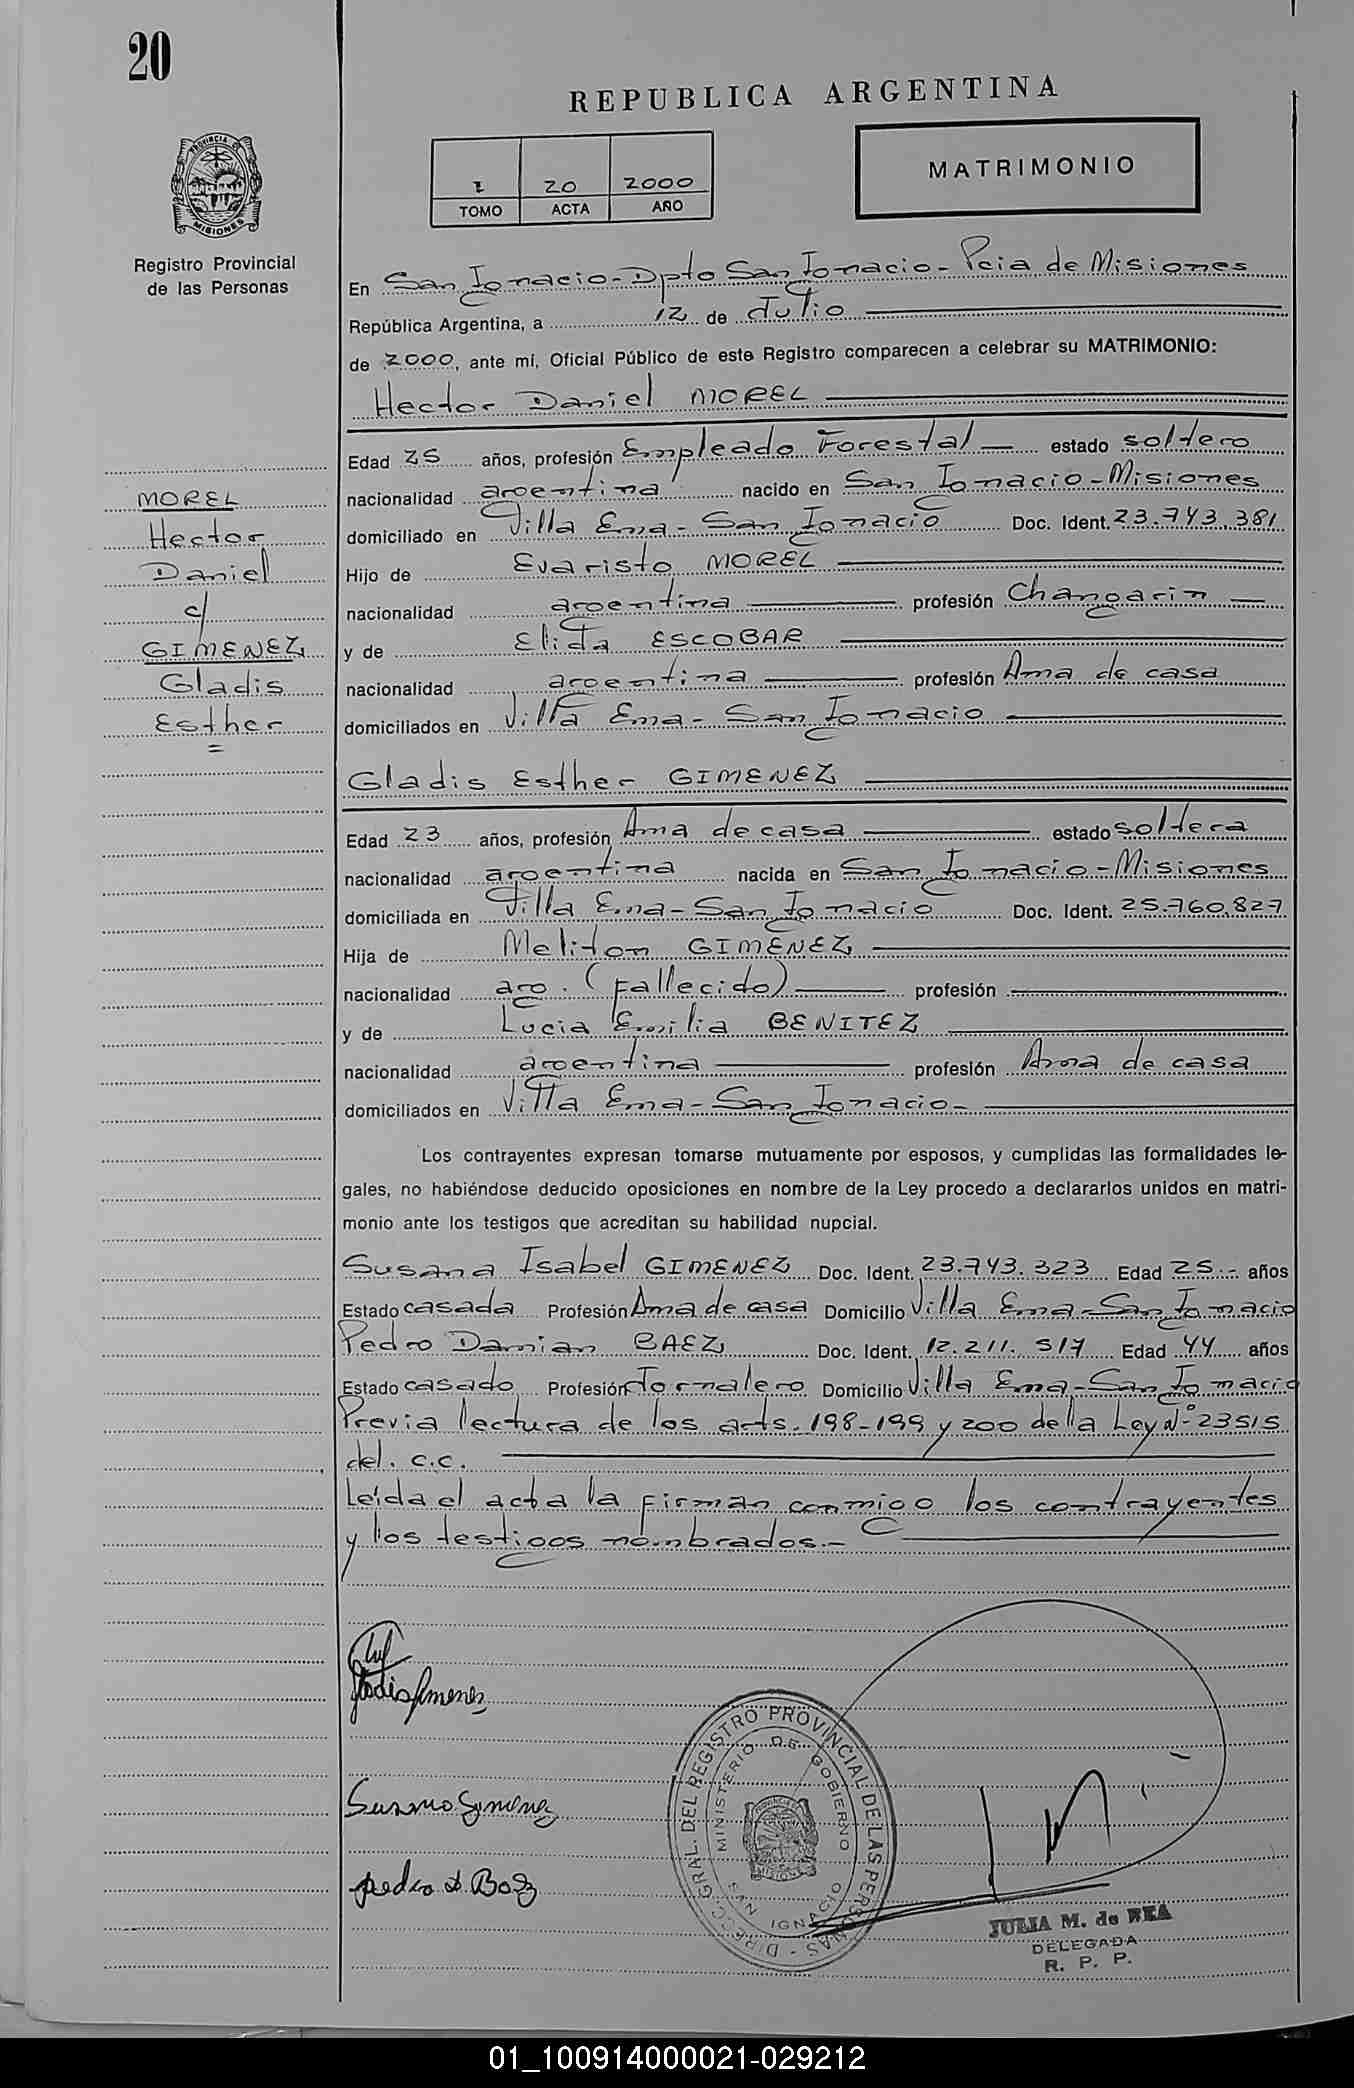 20
REPUBLICA ARGENTINA
PROVINCIA DE
MISIONES
Registro Provincial
de las Personas
I 20 2000
TOMO ACTA AÑO
MATRIMONIO
En San Ignacio - Dpto San Ignacio - Pcia de Misiones
República Argentina, a 12 de Julio
de 2000, ante mí, Oficial Público de este Registro comparecen a celebrar su MATRIMONIO:
Hector Daniel MOREL
Edad 25 años, profesión Empleado Forestal — estado soltero
nacionalidad argentina nacido en San Ignacio - Misiones
domiciliado en Villa Ema - San Ignacio Doc. Ident. 23.743.381
Hijo de Evaristo MOREL
nacionalidad argentina profesión Changarin —
y de Elida ESCOBAR
nacionalidad argentina profesión Ama de casa
domiciliados en Villa Ema - San Ignacio
MOREL
Hector
Daniel
c/
GIMENEZ
Gladis
Esther
Gladis Esther GIMENEZ
Edad 23 años, profesión Ama de casa estado soltera
nacionalidad argentina nacida en San Ignacio - Misiones
domiciliada en Villa Ema - San Ignacio Doc. Ident. 25.760.827
Hija de Meliton GIMENEZ
nacionalidad arg. (fallecido) profesión
y de Lucia Emilia BENITEZ
nacionalidad argentina profesión Ama de casa
domiciliados en Villa Ema - San Ignacio -
Los contrayentes expresan tomarse mutuamente por esposos, y cumplidas las formalidades le-
gales, no habiéndose deducido oposiciones en nombre de la Ley procedo a declararlos unidos en matri-
monio ante los testigos que acreditan su habilidad nupcial.
Susana Isabel GIMENEZ Doc. Ident. 23.743.323 Edad 25.- años
Estado casada Profesión Ama de casa Domicilio Villa Ema - San Ignacio
Pedro Damian BAEZ Doc. Ident. 12.211.517 Edad 44 años
Estado casado Profesión Jornalero Domicilio Villa Ema - San Ignacio
Previa lectura de los arts. 198-199 y 200 de la Ley N° 23515
del. c.c.
Leída el acta la firman conmigo los contrayentes
y los testigos nombrados.-
Gladis Gimenez
Susana Gimenez
pedro D. Baez
DIRECC. GRAL. DEL REGISTRO PROVINCIAL DE LAS PERSONAS
MINISTERIO DE GOBIERNO
SAN IGNACIO
JULIA M. de REA
DELEGADA
R. P. P.
01_100914000021-029212